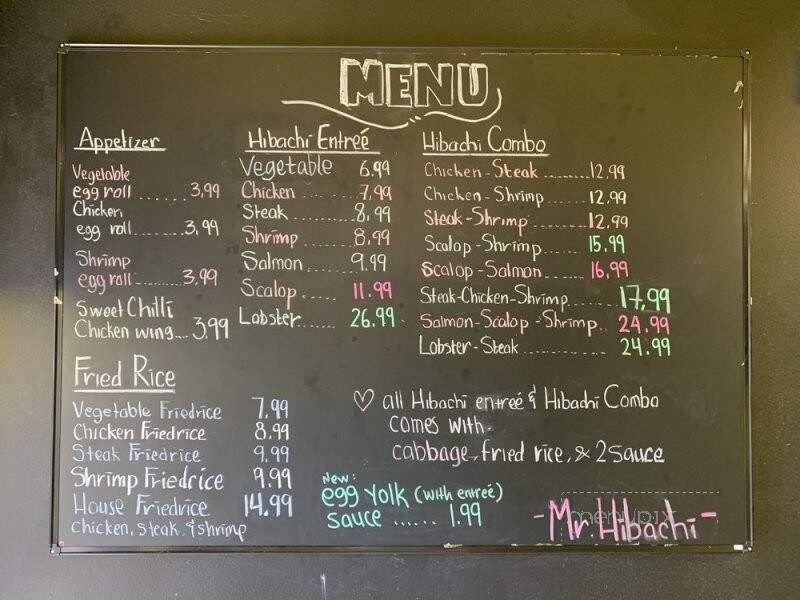 MENU
Appetizer
Vegetable
egg roll ...... 3.99
Chicken
egg roll ........ 3.99
Shrimp
egg roll ........ 3.99
Sweet Chilli
Chicken wing.... 3.99
Hibachi Entreé
Vegetable 6.99
Chicken ........ 7.99
Steak ........ 8.99
Shrimp ........ 8.99
Salmon ...... 9.99
Scalop ..... 11.99
Lobster...... 26.99
Hibachi Combo
Chicken-Steak ........ 12.99
Chicken-Shrimp ........ 12.99
Steak-Shrimp ........ 12.99
Scalop-Shrimp ........ 15.99
Scalop-Salmon ........ 16.99
Steak-Chicken-Shrimp ........ 17.99
Salmon-Scalop-Shrimp.. 24.99
Lobster-Steak ........ 24.99
Fried Rice
Vegetable Friedrice 7.99
Chicken Friedrice 8.99
Steak Friedrice 9.99
Shrimp Friedrice 9.99
House Friedrice 14.99
Chicken, Steak, & Shrimp
♡ all Hibachi entreé & Hibachi Combo
comes with.
cabbage, fried rice, & 2 Sauce
New:
egg Yolk (with entreé)
sauce ...... 1.99
-Mr. Hibachi-
menupix